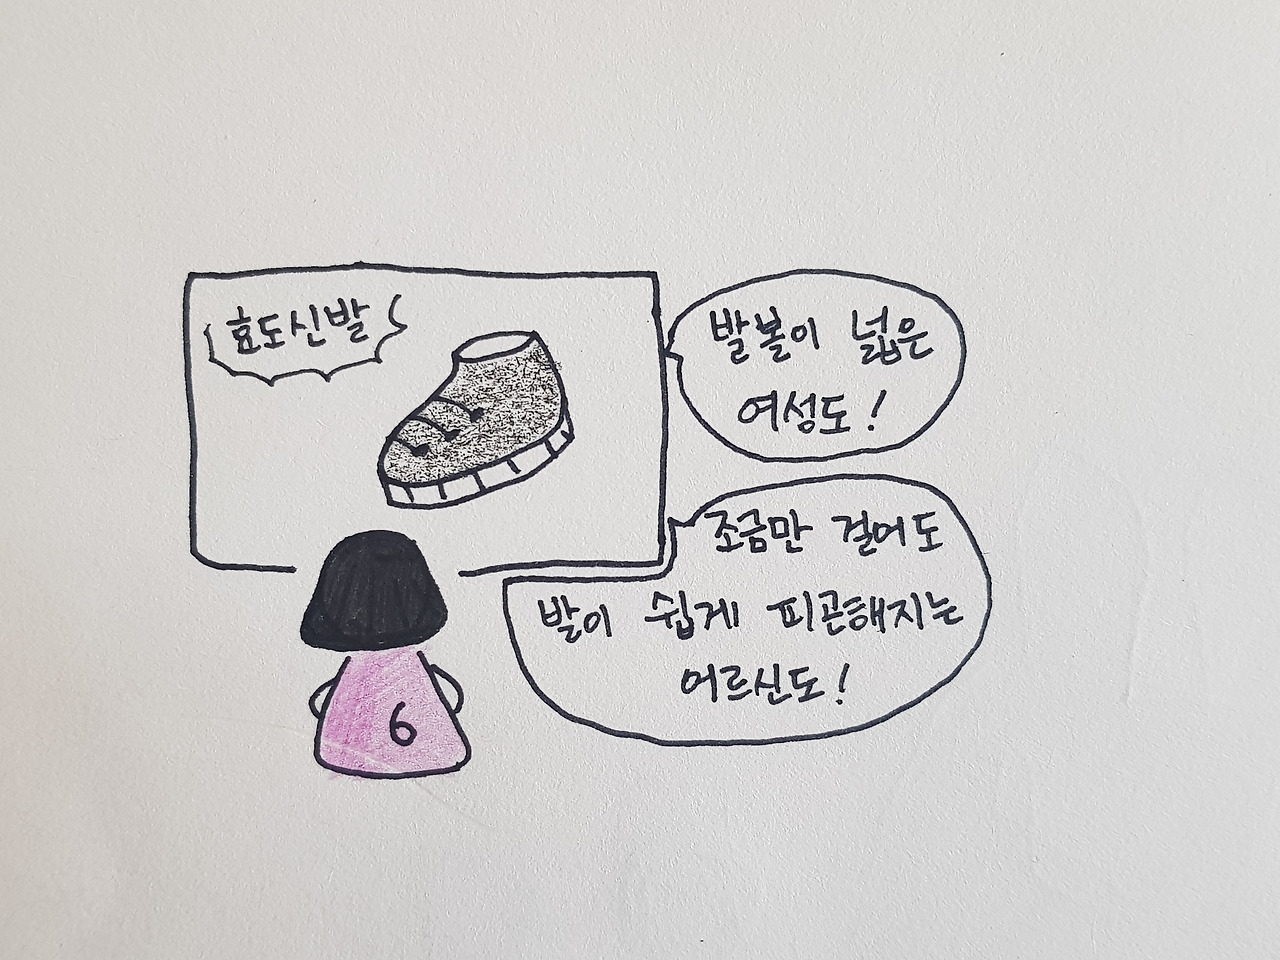 효도신발
발볼이 넓은
여성도!
조금만 걸어도
발이 쉽게 피곤해지는
어르신도!
6